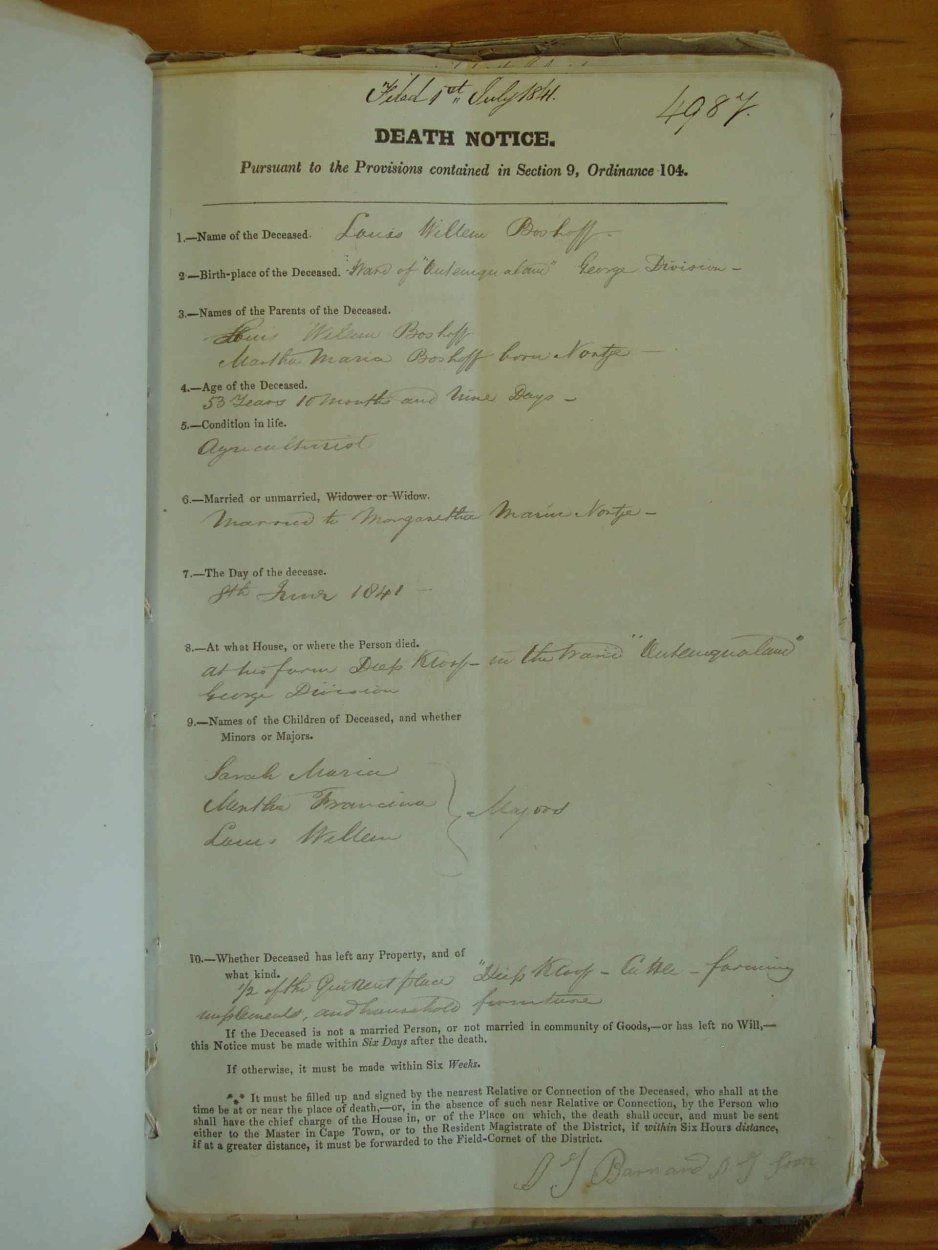 Filed 1st July 1841.
4987.
DEATH NOTICE.
Pursuant to the Provisions contained in Section 9, Ordinance 104.
1.—Name of the Deceased. Louis Willem Boshoff.
2—Birth-place of the Deceased. Ward of "Outeniqualand" George Division —
3.—Names of the Parents of the Deceased.
Louis Willem Boshoff
Martha Maria Boshoff born Nortje —
4.—Age of the Deceased.
53 Years 10 Months and Nine Days —
5.—Condition in life.
Agriculturist
6.—Married or unmarried, Widower or Widow.
Married to Margaretha Maria Nortje —
7.—The Day of the decease.
8th June 1841 —
8.—At what House, or where the Person died.
at his farm Diep Kloof — in the Ward "Outeniqualand"
George Division
9.—Names of the Children of Deceased, and whether
Minors or Majors.
Sarah Maria
Martha Francina
Louis Willem
Majors
10.—Whether Deceased has left any Property, and of
what kind.
1/2 of the Quitrent place "Diep Kloof — Cattle — farming
implements, and household furniture
If the Deceased is not a married Person, or not married in community of Goods,—or has left no Will,—
this Notice must be made within Six Days after the death.
If otherwise, it must be made within Six Weeks.
*** It must be filled up and signed by the nearest Relative or Connection of the Deceased, who shall at the
time be at or near the place of death,—or, in the absence of such near Relative or Connection, by the Person who
shall have the chief charge of the House in, or of the Place on which, the death shall occur, and must be sent
either to the Master in Cape Town, or to the Resident Magistrate of the District, if within Six Hours distance,
if at a greater distance, it must be forwarded to the Field-Cornet of the District.
Barnard